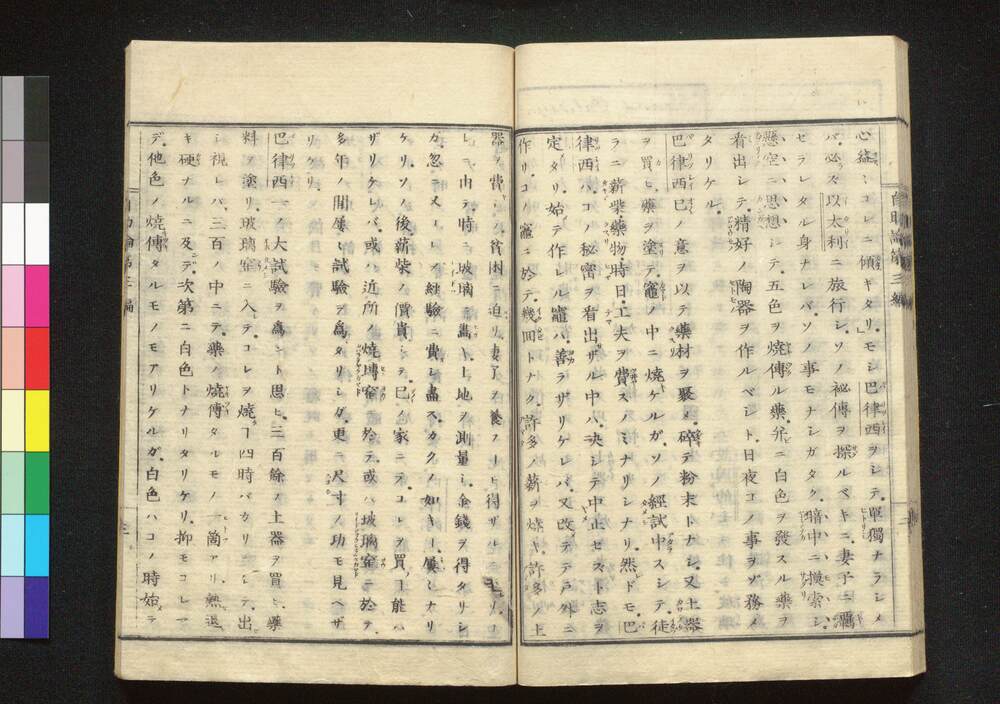 心益〻コレニ傾キタリ。モシ巴律西ヲシテ單獨ナラシメ
バ必ズ以太利ニ旅行シ、ソノ祕傳ヲ探ルベキニ、妻子ニ羈
セラレタル身ナレバ、ソノ事モナシガタク、暗中ニ摸索シ、
懸空ニ思想シテ、五色ヲ燒傅ル藥、并ニ白色ヲ發スル藥ヲ
看出シテ、精好ノ陶器ヲ作ルベシト、日夜コノ事ヲゾ務メ
タリケル。
巴律西已ノ意ヲ以テ藥材ヲ聚メ、碎テ粉末トナシ、又土器
ヲ買ヒ、藥ヲ塗テ竈ノ中ニ燒ケルガ、ソノ經試中ズシテ、徒
ラニ薪柴藥物時日工夫ヲ費スノミナリシナリ。然ドモ巴
律西ハコノ秘密ヲ看出サヾル中ハ、決シテ中止セズト志ヲ
定タリ。始テ作レル竈ハ善ラザリケレバ、又改テ戸外ニ
作リ、コノ竈ニ於テ、幾回トナク、許多ノ薪ヲ燒キ、許多ノ土
器ヲ費シ、貧困ニ迫リ、妻子ヲ養フヿヲ得ザルニ至ル。ソコ
ニ由テ、時ニ玻璃ニ畫キ、土地ヲ測量シ、金錢ヲ得タリシ
ガ、忽チ又コレヲ經驗ニ費シ盡ス、カクノ如キヿ屢〻ナリ
ケリ。ソノ後薪柴ノ價貴シテ、已ガ家ニテコレヲ買フヿ能ハ
ザリケレバ、或ハ近所ノ燒塼窑ニ於テ、或ハ玻璃窑ニ於テ、
多年ノ間屢〻試驗ヲ爲タリシガ、更ニ尺寸ノ功モ見ヘザ
リケリ。
巴律西一ノ大試驗ヲ爲ント思ヒ、三百餘ノ土器ヲ買ヒ、藥
料ヲ塗リ、玻璃窑ニ入テ、コレヲ燒ヿ四時バカリニシテ、出
シ視レバ、三百ノ中ニテ、藥ノ燒傅タルモノ一箇アリ、熱退
キ硬ナルニ及ンデ、次第ニ白色トナリタリケリ。抑モコレマ
デ、他色ノ燒傅タルモノモアリケルガ、白色ハコノ時始テ